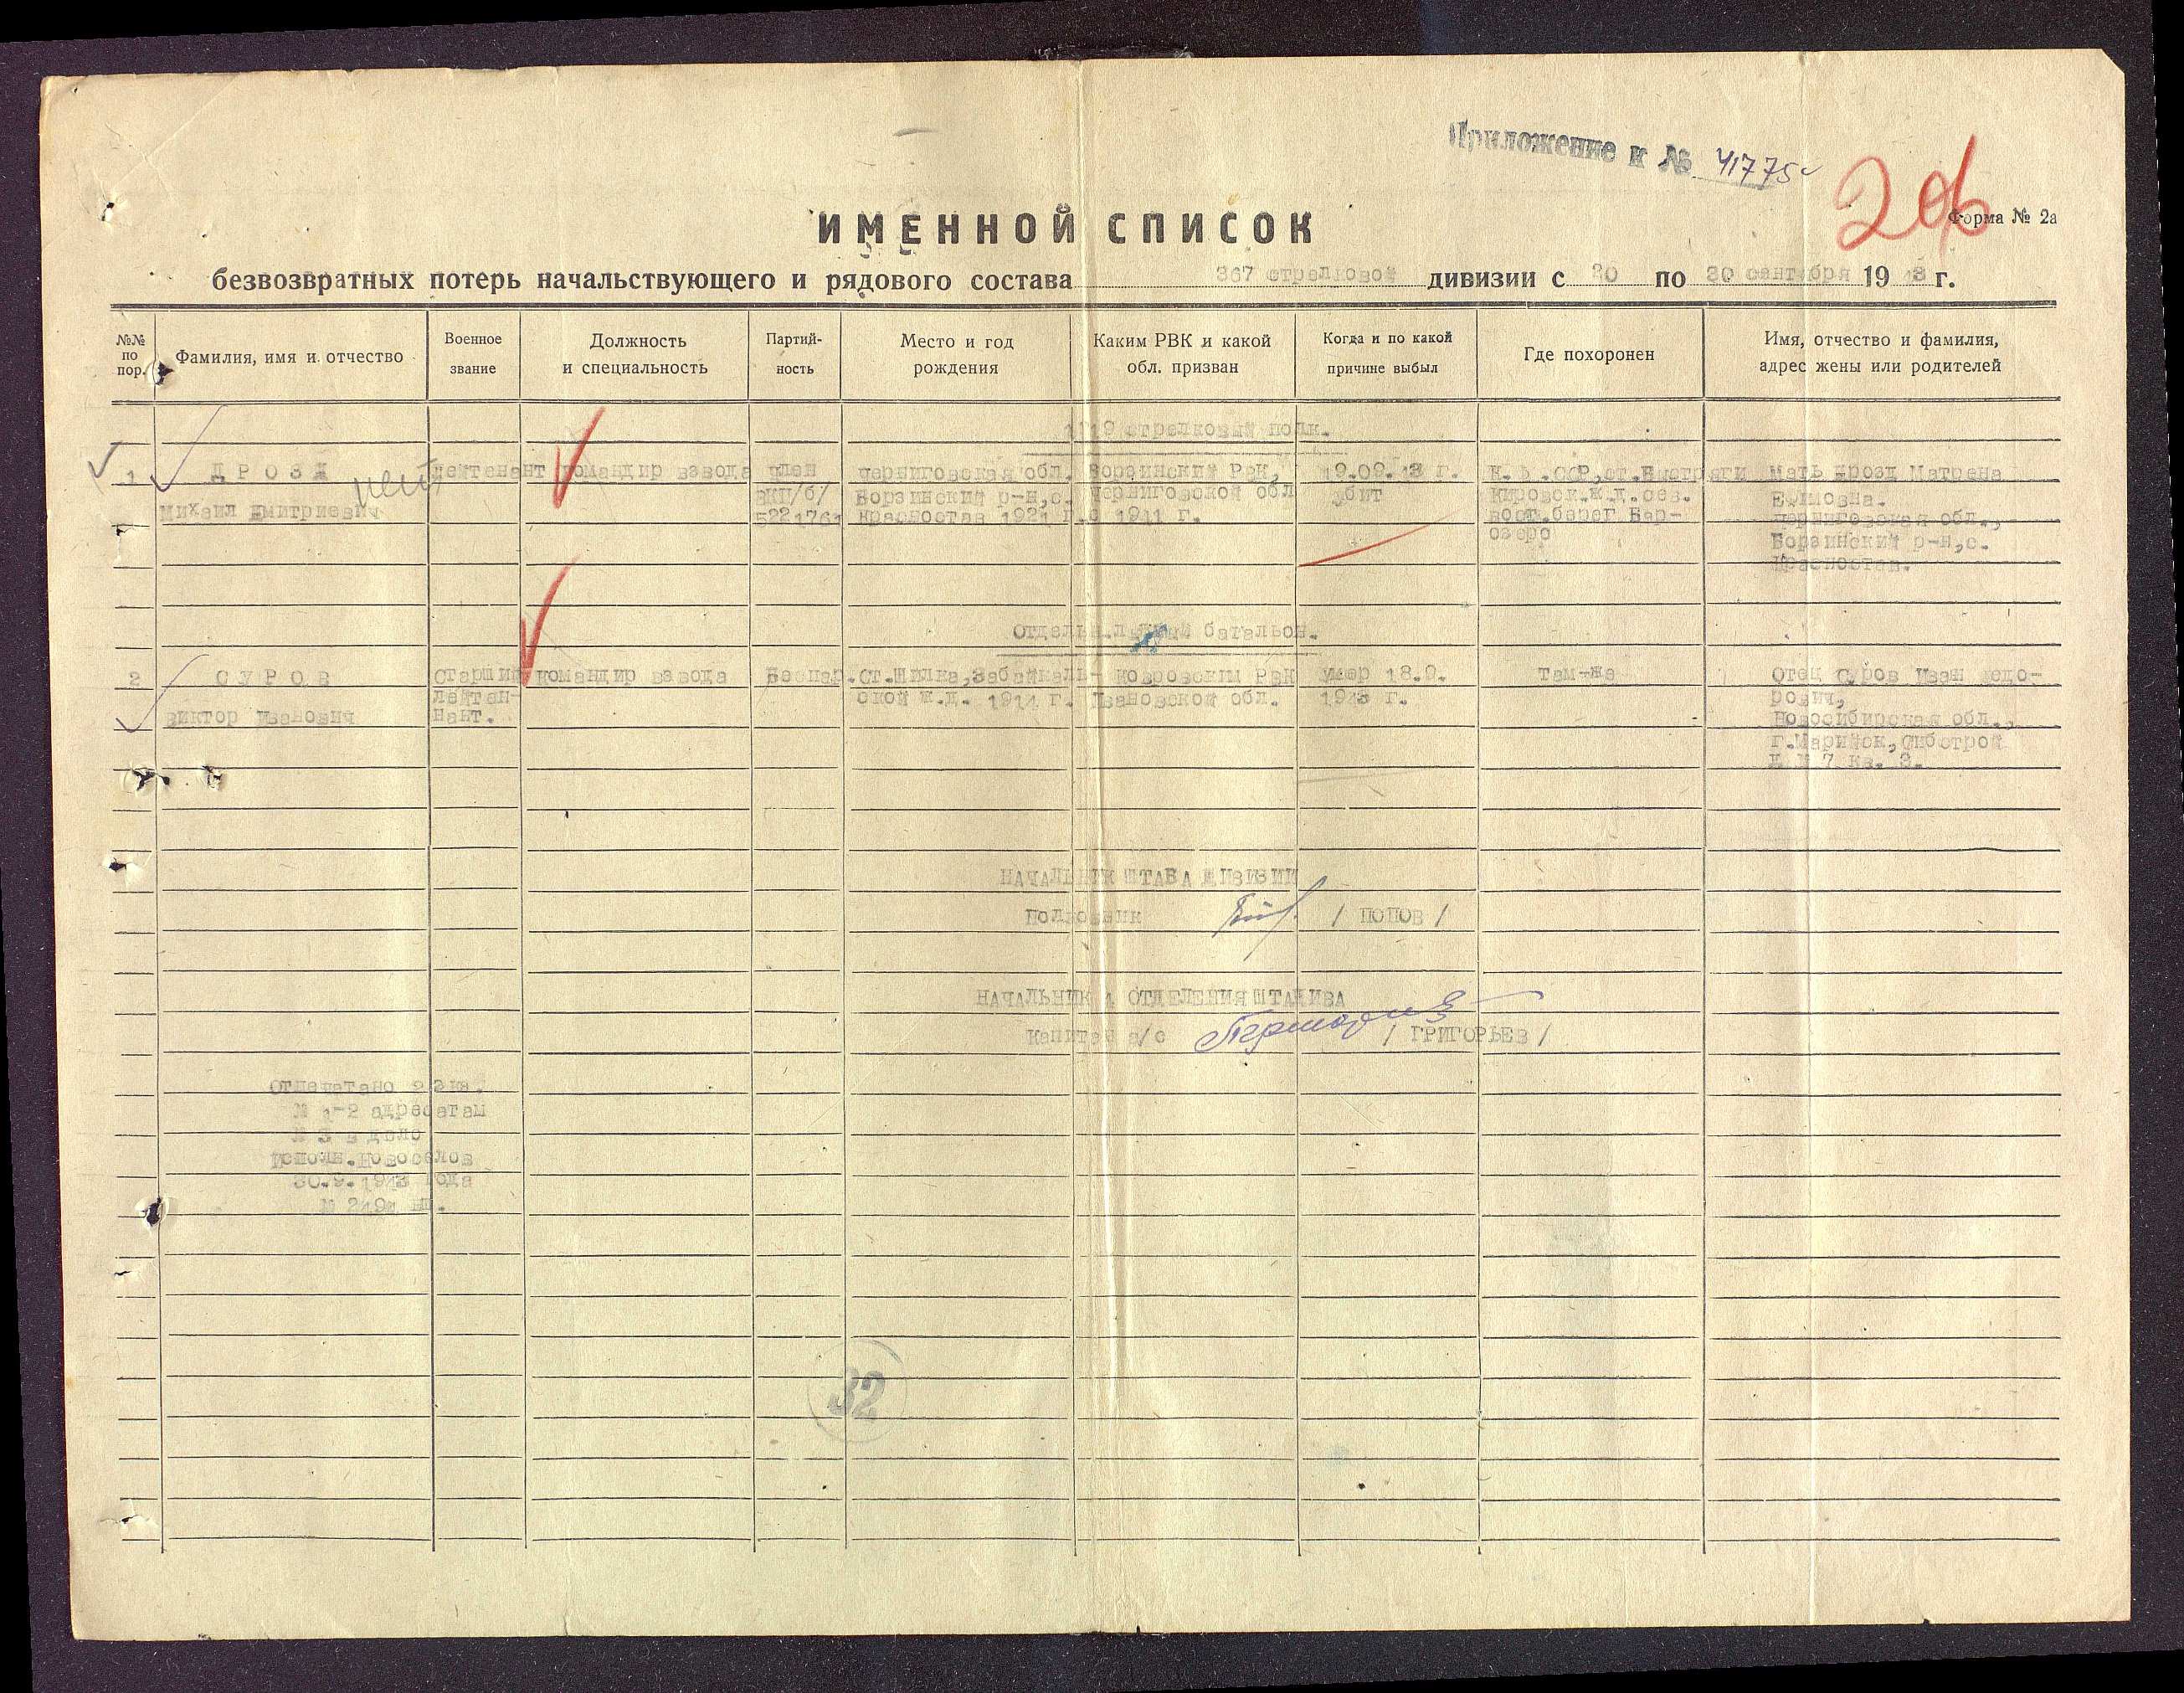 Приложение к № 41775с
206
Форма № 2а
ИМЕННОЙ СПИСОК
безвозвратных потерь начальствующего и рядового состава 367 стрелковой дивизии с 20 по 30 сентября 1943 г.
№№ по пор.
Фамилия, имя и отчество
Военное звание
Должность и специальность
Партий-ность
Место и год рождения
Каким РВК и какой обл. призван
Когда и по какой причине выбыл
Где похоронен
Имя, отчество и фамилия, адрес жены или родителей
1219 стрелковый полк.
1 ДРОЗД лейтенант командир взвода член черниговская обл. Борзинский РВК, 19.09.43 г. ст. мать Дрозд Матрена
ВКП/б/ Борзинский р-н,с. Черниговской обл убит Кировск.ж.д. сев. Ефимовна.
Михаил Дмитриевич 5221761 Красностав 1921 г. с 1941 г. вост.берег Вар- Черниговская обл.,
озеро Борзинский р-н,с.
Красностав.
Отдельн. батальон.
2 СУРОВ старший командир взвода Беспар. ст.Шилка,Забайкаль- Ковровским РВК умер 18.9. Там-же Отец Суров Иван Федо-
лейтен- ской ж.д. 1914 г. Ивановской обл. 1943 г. рович,
Виктор Иванович нант. Новосибирская обл.,
г.Мариинск,Сибстрой
Д № 7 кв. 3.
НАЧАЛЬНИК ШТАБА ДИВИЗИИ
Полковник / ПОПОВ /
НАЧАЛЬНИК 4 ОТДЕЛЕНИЯ ШТАДИВА
Капитан а/с / ГРИГОРЬЕВ /
Отпечатано
№ 1-2 адресатам
№ 3 в дело
Исполн.Новоселов
30.9.1943 года
32